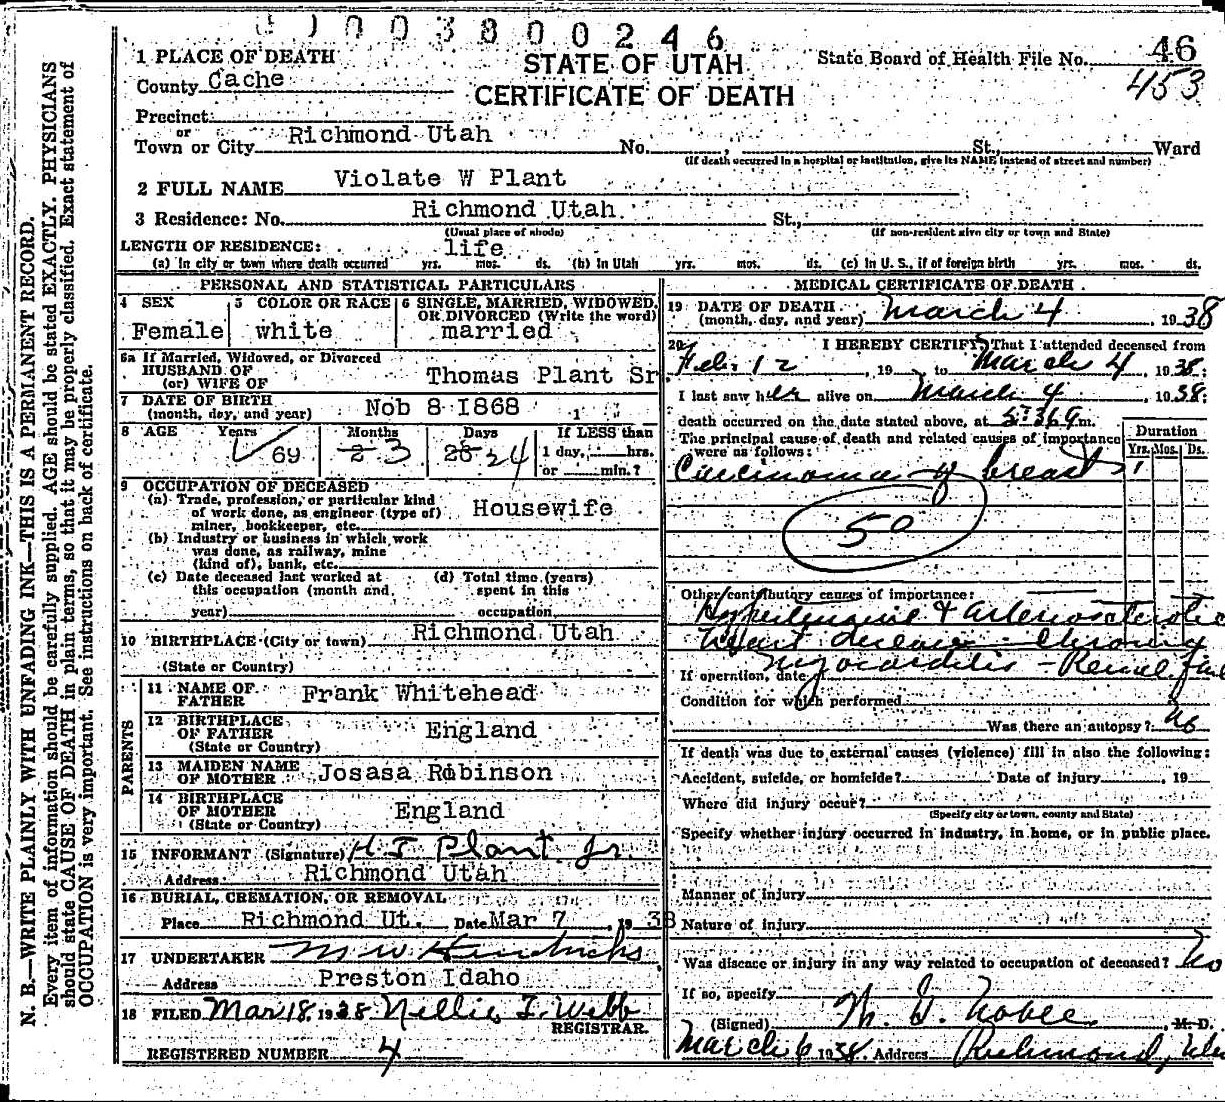 0 1 0 0 3 8 0 0 2 4 6
STATE OF UTAH
CERTIFICATE OF DEATH
State Board of Health File No. 46
453
1 PLACE OF DEATH
County Cache
Precinct
or
Town or City Richmond Utah No. , St., Ward
(If death occurred in a hospital or institution, give its NAME instead of street and number)
2 FULL NAME Violate W Plant
3 Residence: No. Richmond Utah St.,
(Usual place of abode) (If non-resident give city or town and State)
LENGTH OF RESIDENCE: life
(a) In city or town where death occurred yrs. mos. ds. (b) In Utah yrs. mos. ds. (c) In U. S., if of foreign birth yrs. mos. ds.
PERSONAL AND STATISTICAL PARTICULARS
4 SEX 5 COLOR OR RACE 6 SINGLE, MARRIED, WIDOWED,
OR DIVORCED (Write the word)
Female white married
6a If Married, Widowed, or Divorced
HUSBAND OF
(or) WIFE OF Thomas Plant Sr
7 DATE OF BIRTH
(month, day, and year) Nob 8 1868 1
8 AGE Years Months Days If LESS than
69 2 3 26 24 1 day, hrs.
or min.?
9 OCCUPATION OF DECEASED
(a) Trade, profession, or particular kind
of work done, as engineer (type of)
miner, bookkeeper, etc. Housewife
(b) Industry or business in which work
was done, as railway, mine
(kind of), bank, etc.
(c) Date deceased last worked at (d) Total time (years)
this occupation (month and spent in this
year) occupation
10 BIRTHPLACE (City or town) Richmond Utah
(State or Country)
PARENTS
11 NAME OF
FATHER Frank Whitehead
12 BIRTHPLACE
OF FATHER England
(State or Country)
13 MAIDEN NAME
OF MOTHER Josasa Robinson
14 BIRTHPLACE
OF MOTHER England
(State or Country)
15 INFORMANT (Signature) H. T. Plant Jr.
Address Richmond Utah
16 BURIAL, CREMATION, OR REMOVAL
Place Richmond Ut. Date Mar 7, 1938
17 UNDERTAKER M W Hendricks
Address Preston Idaho
18 FILED Mar 18, 1938 Nellie T. Webb
REGISTRAR.
REGISTERED NUMBER 4
MEDICAL CERTIFICATE OF DEATH
19 DATE OF DEATH
(month, day, and year) March 4, 1938
20 I HEREBY CERTIFY, That I attended deceased from
Feb. 12, 19 to March 4, 1938;
I last saw her alive on March 4, 1938;
death occurred on the date stated above, at 5:36 a m.
The principal cause of death and related causes of importance
were as follows: Duration
Yrs. Mos. Ds.
Carcinoma of breast 1
50
Other contributory causes of importance:
Hypertensive & arteriosclerotic
heart disease - Chronic
myocarditis - Renal fail
If operation, date
Condition for which performed
Was there an autopsy? No
If death was due to external causes (violence) fill in also the following:
Accident, suicide, or homicide? Date of injury , 19
Where did injury occur?
(Specify city or town, county and State)
Specify whether injury occurred in industry, in home, or in public place.
Manner of injury
Nature of injury
Was disease or injury in any way related to occupation of deceased? No
If so, specify
(Signed) , M. D.
March 6, 1938. Address Richmond, Utah
N. B.—WRITE PLAINLY WITH UNFADING INK—THIS IS A PERMANENT RECORD.
Every item of information should be carefully supplied. AGE should be stated EXACTLY. PHYSICIANS
should state CAUSE OF DEATH in plain terms, so that it may be properly classified. Exact statement of
OCCUPATION is very important. See instructions on back of certificate.